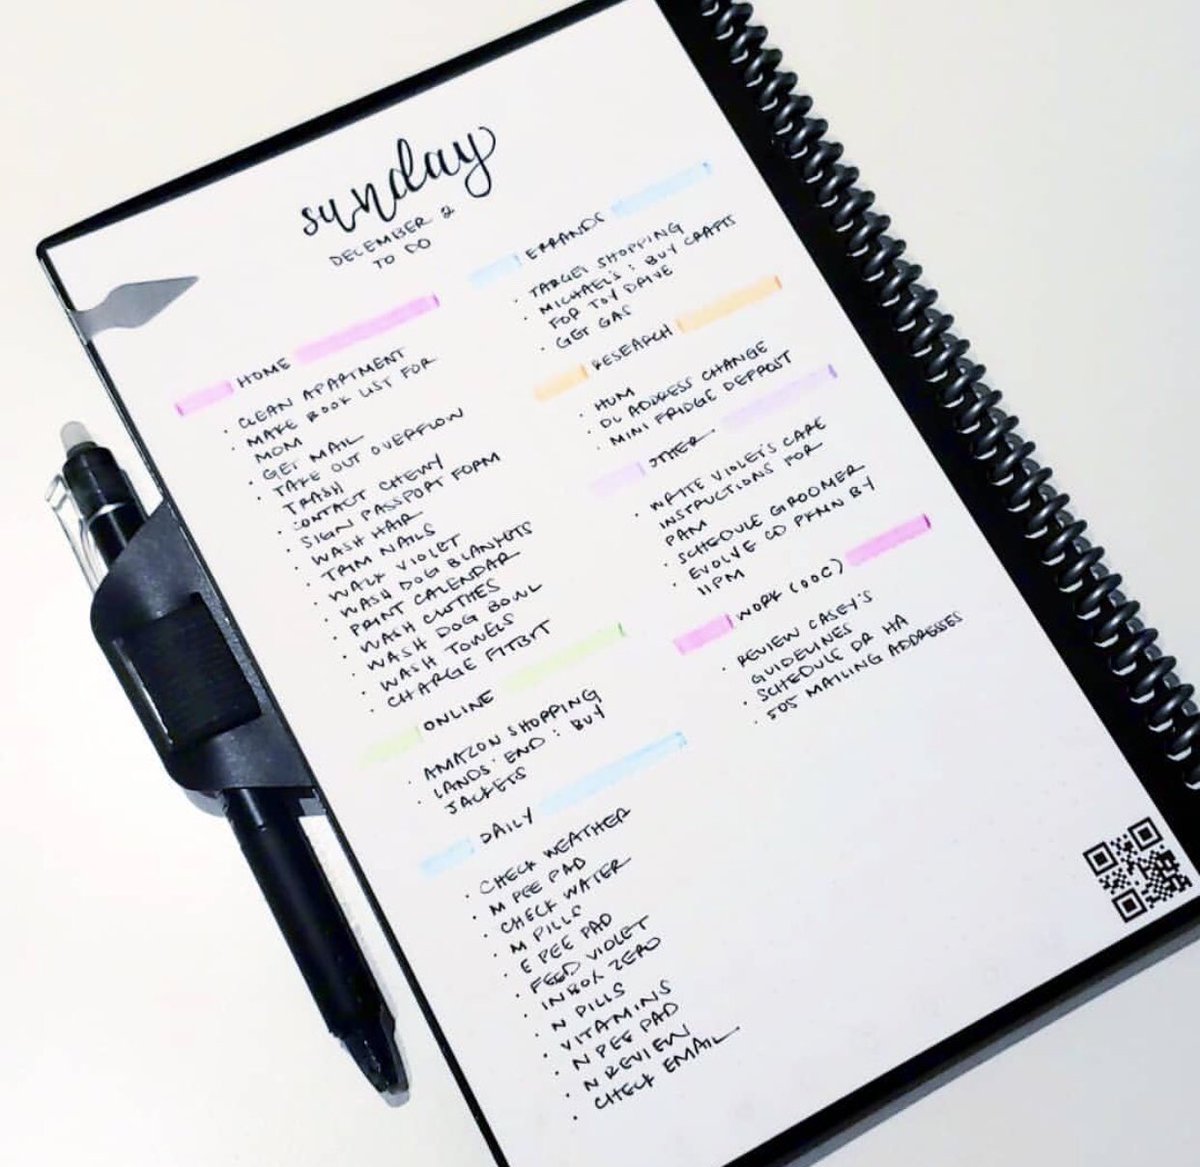 sunday
DECEMBER 2
TO DO
HOME
· CLEAN APARTMENT
· MAKE BOOK LIST FOR
MOM
· GET MAIL
· TAKE OUT OVERFLOW
TRASH
· CONTACT CHEWY
· SIGN PASSPORT FORM
· WASH HAIR
· TRIM NAILS
· WALK VIOLET
· WASH DOG BLANKETS
· PRINT CALENDAR
· WASH CLOTHES
· WASH DOG BOWL
· WASH TOWELS
· CHARGE FITBIT
ONLINE
· AMAZON SHOPPING
· LANDS' END: BUY
JACKETS
DAILY
· CHECK WEATHER
· M PEE PAD
· CHECK WATER
· M PILLS
· E PEE PAD
· FEED VIOLET
· INBOX ZERO
· N PILLS
· VITAMINS
· N PEE PAD
· N REVIEW
· CHECK EMAIL
ERRANDS
· TARGET SHOPPING
· MICHAEL'S: BUY CRAFTS
FOR TOY DRIVE
· GET GAS
RESEARCH
· HUM
· DL ADDRESS CHANGE
· MINI FRIDGE DEPOSIT
OTHER
· WRITE VIOLET'S CARE
INSTRUCTIONS FOR
PAM
· SCHEDULE GROOMER
· EVOLVE CD PKMN BY
11PM
WORK (OOC)
· REVIEW CASEY'S
GUIDELINES
· SCHEDULE DR HA
· 505 MAILING ADDRESSES